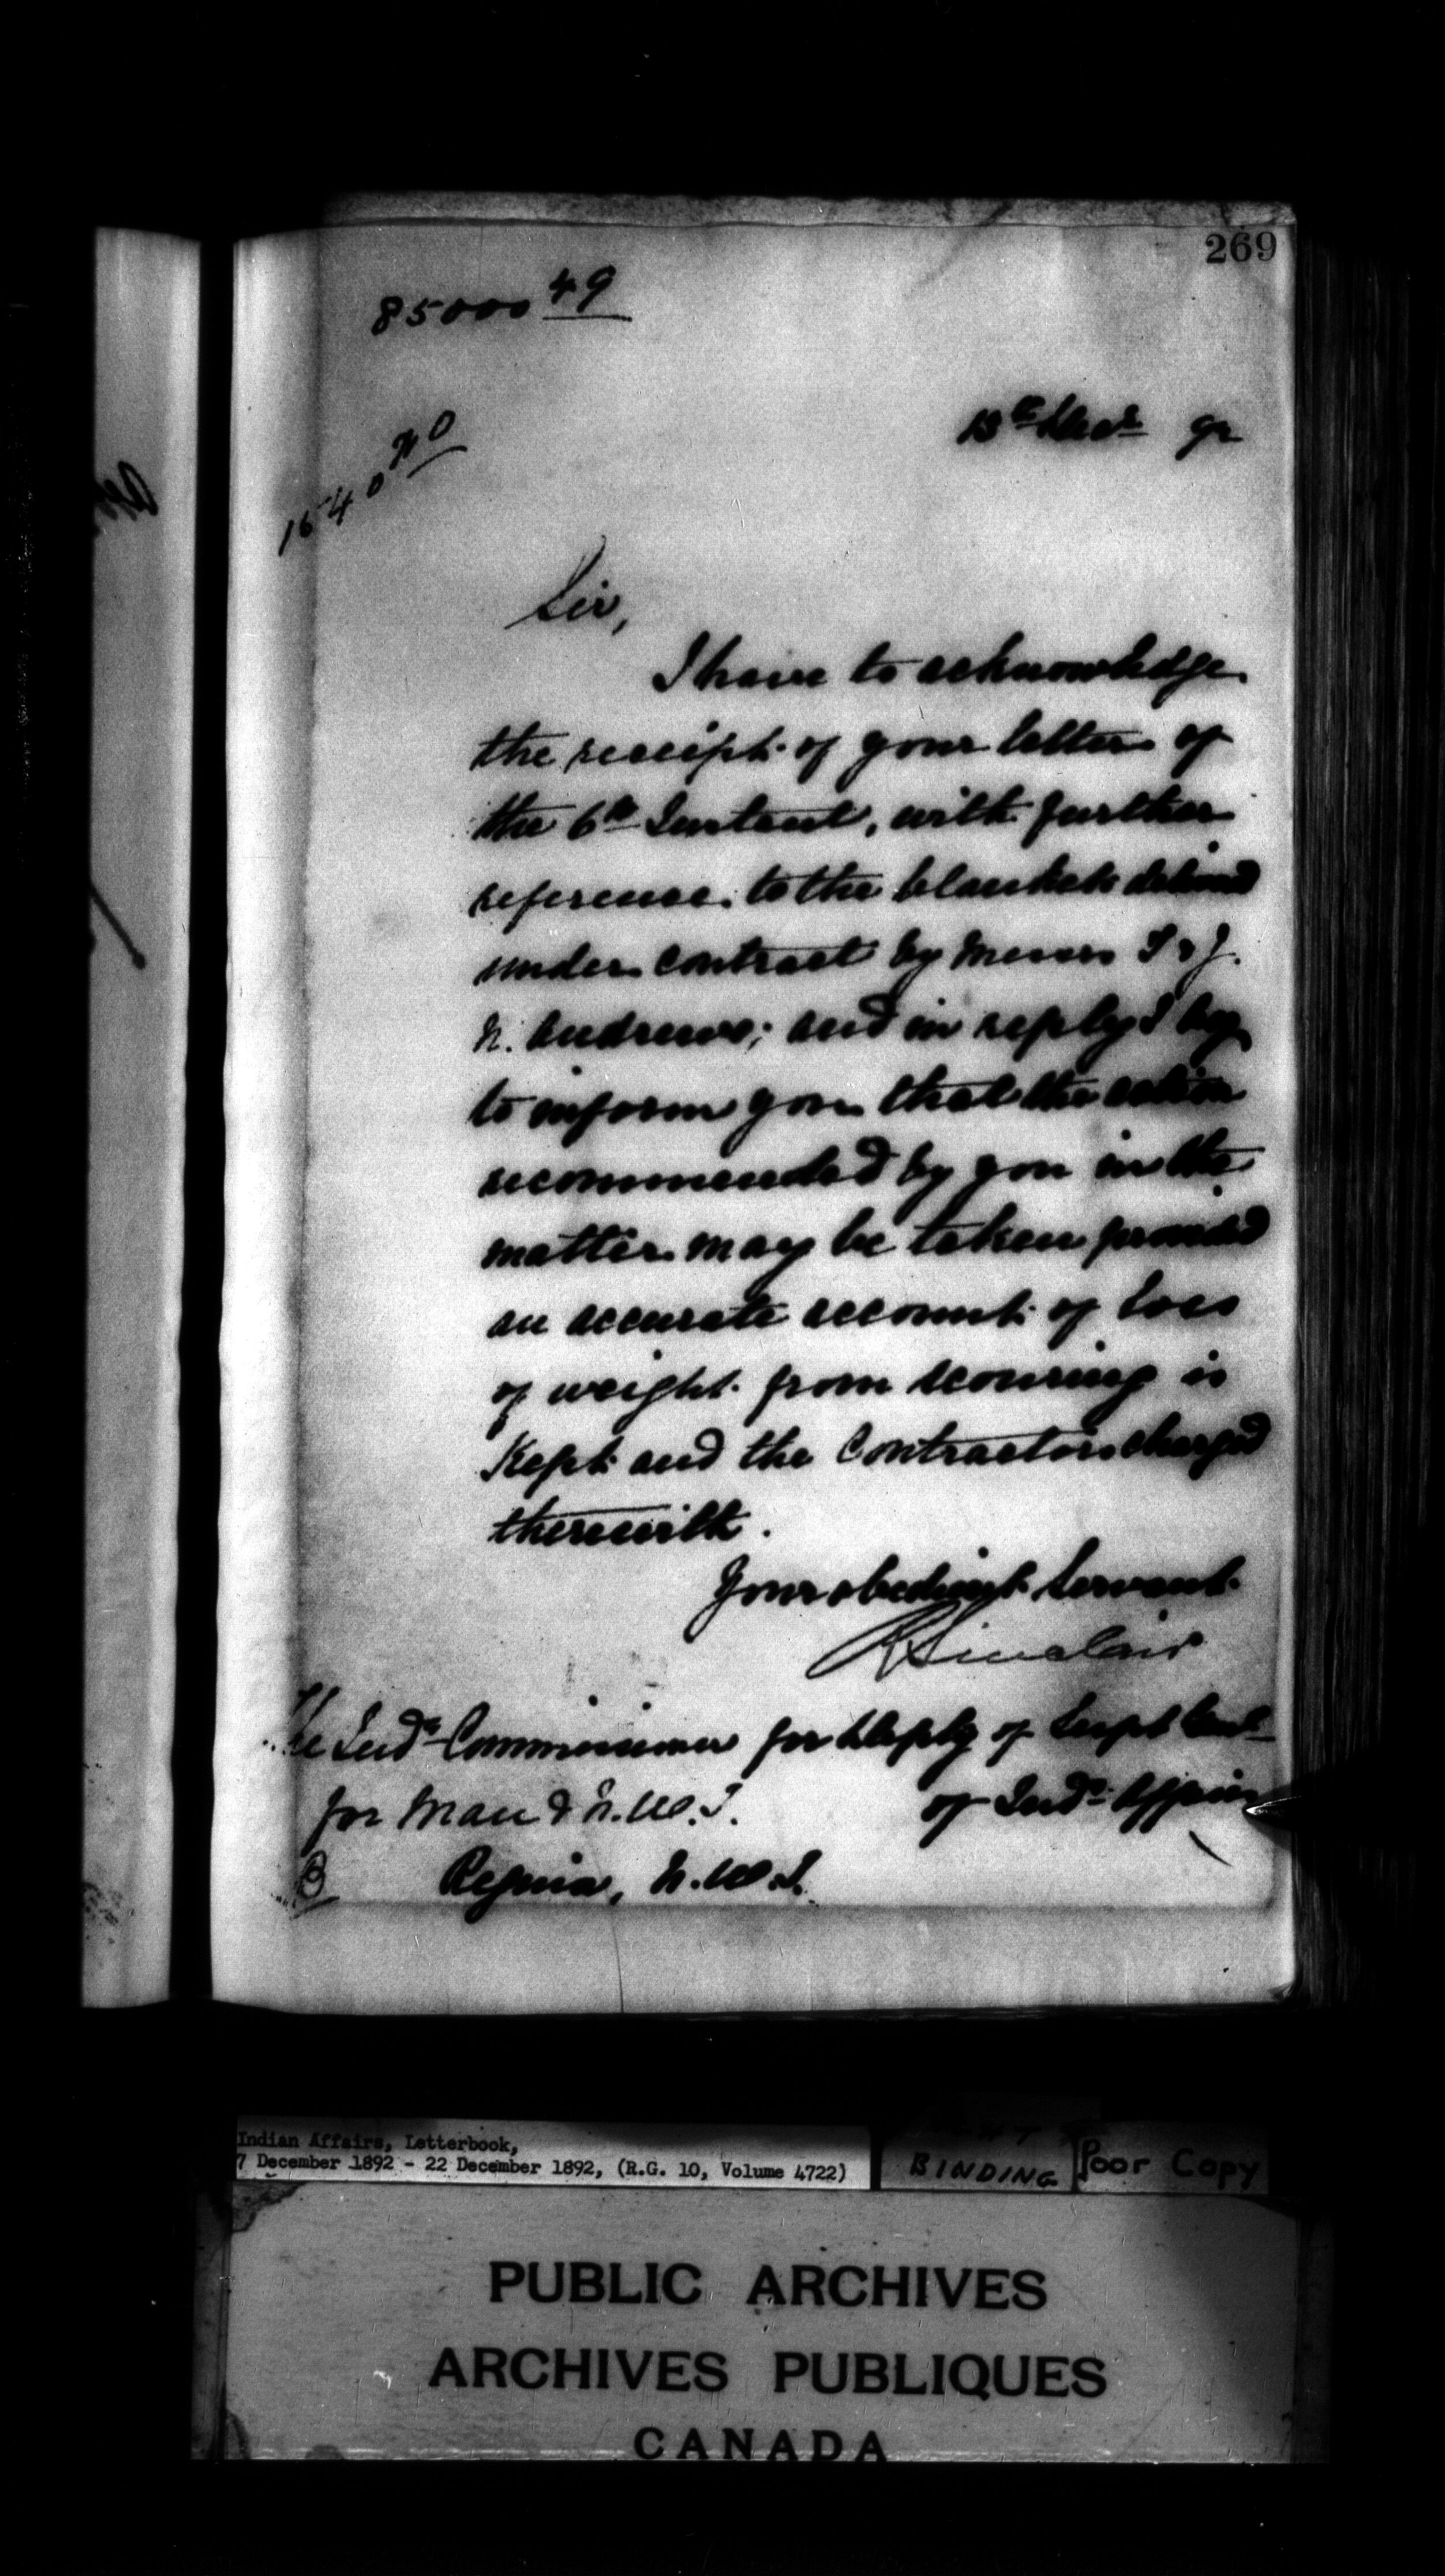 269
85000 49
13th Decr 92
Sir,
I have to acknowledge
the receipt of your letter of
the 6th Instant, with further
reference to the blankets
under contract by Messrs T & J.
N. Andrews; and in reply I beg
to inform you that the action
recommended by you in the
matter may be taken provided
an accurate account of loss
of weight from scouring is
Kept and the Contractors charged
therewith.
Your obedient Servant
R Sinclair
The Indn Commissioner for Depty of Supt Genl
for Man & N.W.T. of Indn Affairs
B Regina, N.W.T.
Indian Affairs, Letterbook,
7 December 1892 - 22 December 1892, (R.G. 10, Volume 4722)
BINDING Poor Copy
PUBLIC ARCHIVES
ARCHIVES PUBLIQUES
CANADA